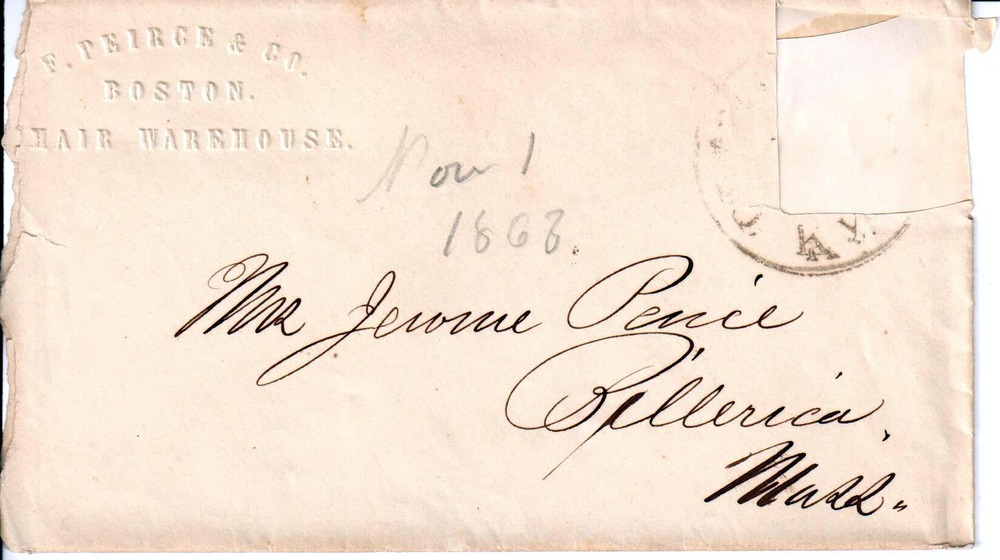 F. PEIRCE & CO.
BOSTON.
HAIR WAREHOUSE.
Nov 1
1863.
Mrs Jerome Peirce
Billerica,
Mass.
KY